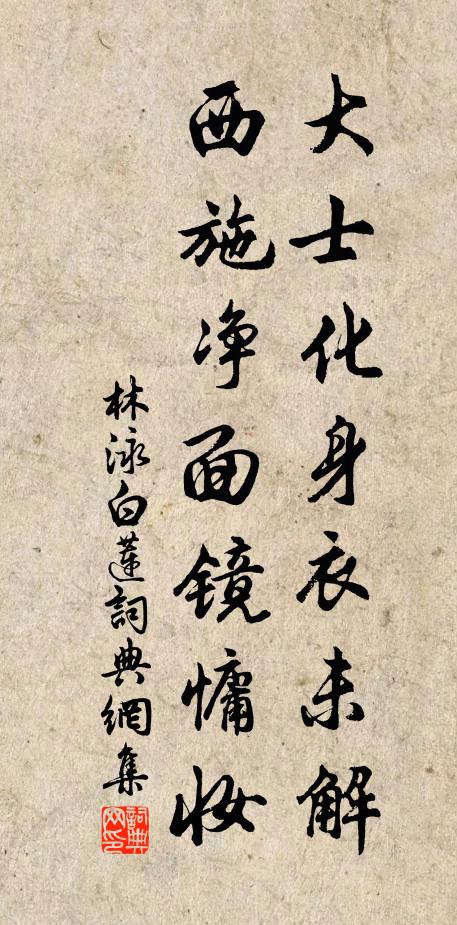 大士化身衣未解
西施净面镜慵妆
林泳白蓮詞典網集
詞典网印